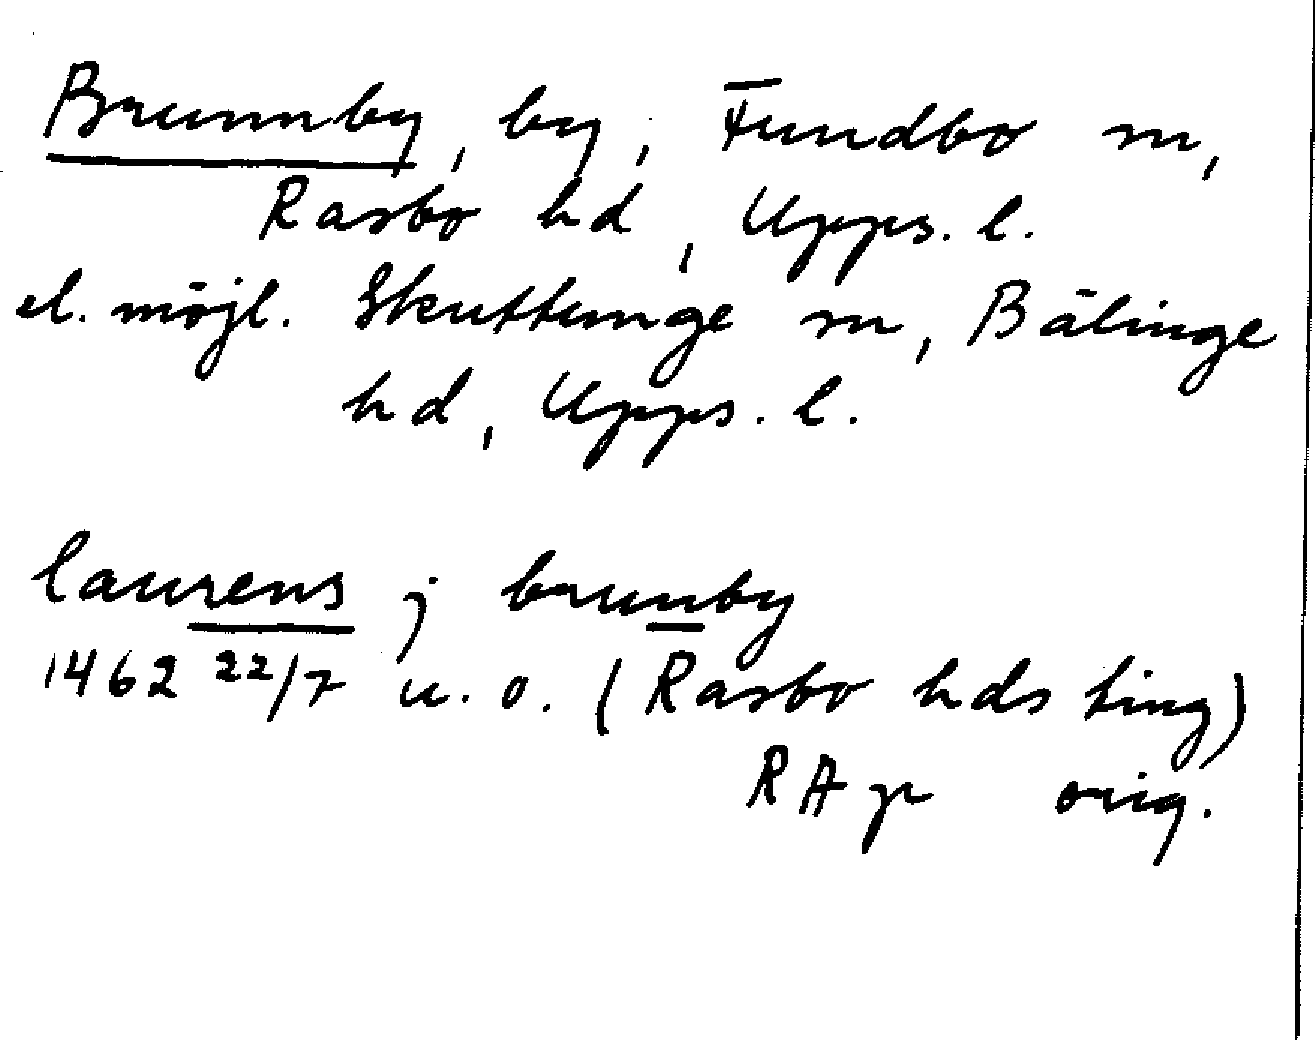 Brunnby, by, Fundbo sn,
Rasbo hd, Upps. l.
el. möjl. Skuttunge sn, Bälinge
hd, Upps. l.
laurens j brunby
1462 22/7 u. o. (Rasbo hds ting)
RA p orig.